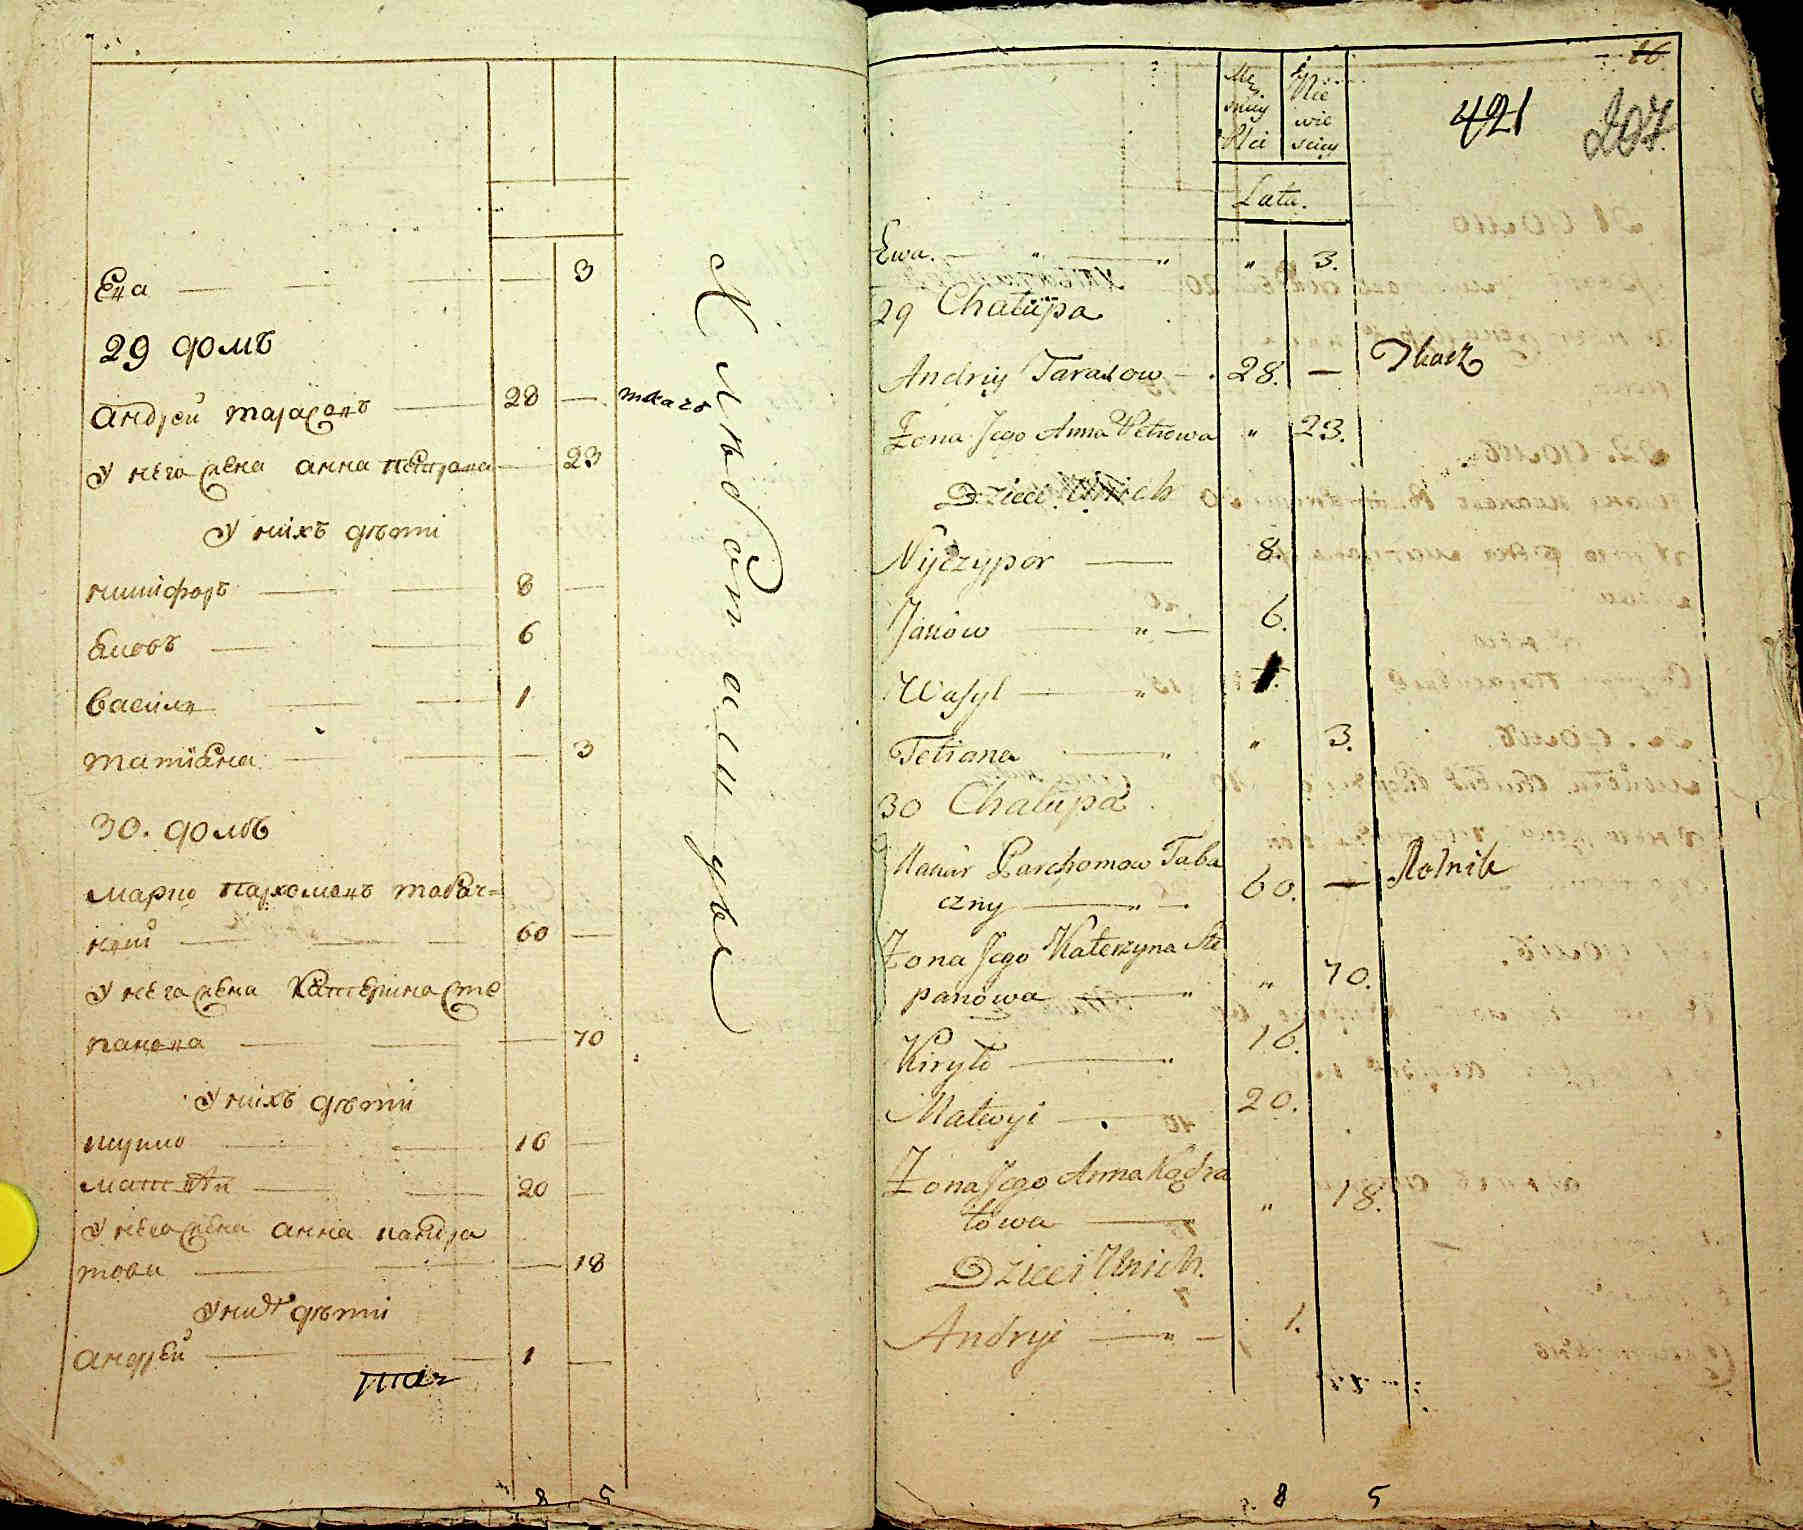 Ева — — — — 3
29 домъ
Андрей тарасовъ — 28 — ткачъ
У него жена анна петрова — 23
У нихъ дѣти
никифоръ — — 8 —
Яковъ — — 6
василь — — 1
татияна — — — 3
30. домъ
марко пархомовъ табач=
ний — — — 60 —
У него жена Катерина сте
панова — — — 70
У нихъ дѣти
кирило — — 16 —
матвѣй — — 20 —
У него жена анна кандра
това — — — 18
У нихъ дѣти
андрей — — — 1 —
8 5
Хлѣбопашцы
16
421 207
Mę
szczy
źni
Nie
wie
ściy
Lata.
Ewa. — " — " " 3.
29 Chałupa
Andriy Tarasow — . 28. — Tkacz
Żona Jego Anna Petrowa " 23.
Dzieci Unich
Nijczypor — 8.
Jaków — " — 6.
Wasyl — " 1.
Tetiana — " " 3.
30 Chałupa
Makar Parchomow Taba
czny — " — 60. — Rolnik
Żona Jego Katerzyna Ste
panowa — " " 70.
Kiryło — " 16.
Matwyi — . — 20.
Żona Jego Anna Kądra
towa — " 18.
Dzieci Unich.
Andryi — " — 1.
8 5